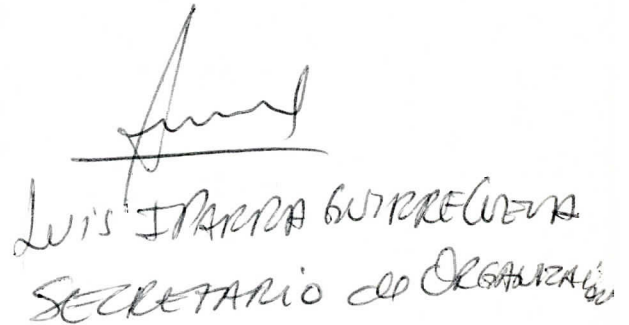 Luis IBARRA GUTIRREGUEZA
SECRETARIO de ORGANIZACIÓN